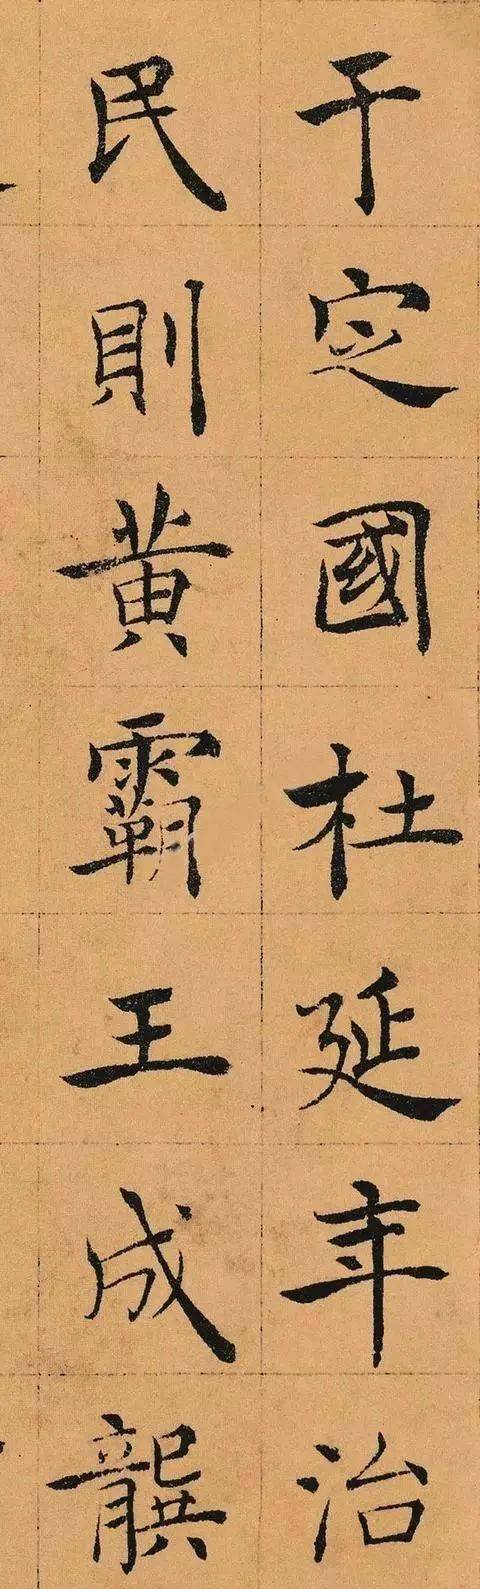 于定國杜延年治
民則黃霸王成龔